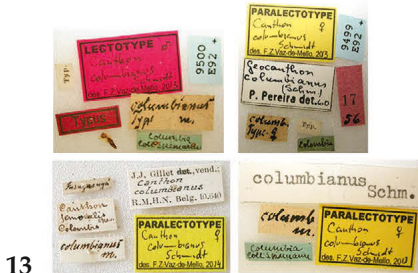 Typ.
LECTOTYPE ♂
Canthon
columbianus
Schmidt
des. F.Z.Vaz-de-Mello, 2013
9500
E92 +
Typus
columbianus
Typ m.
Columbia
PARALECTOTYPE ♀
Canthon
columbianus
Schmidt
des. F.Z.Vaz-de-Mello, 2013
9499
E92 +
Geocanthon
columbianus
(Schm)
P. Pereira det.
17
56
columb
Typ. ♀
Typ.
Columbia
Fusagasugá
Canthon
Columbia
columbianus
m.
J.J. Gillet det., vend.;
Canthon
columbianus
R.M.H.N. Belg. 10.640
PARALECTOTYPE
Canthon ♀
columbianus
Schmidt
des. F.Z.Vaz-de-Mello, 2014
columbianus
Schm.
columb
m.
Columbia
PARALECTOTYPE
Canthon ♀
columbianus
Schmidt
des. F.Z.Vaz-de-Mello, 2013
13